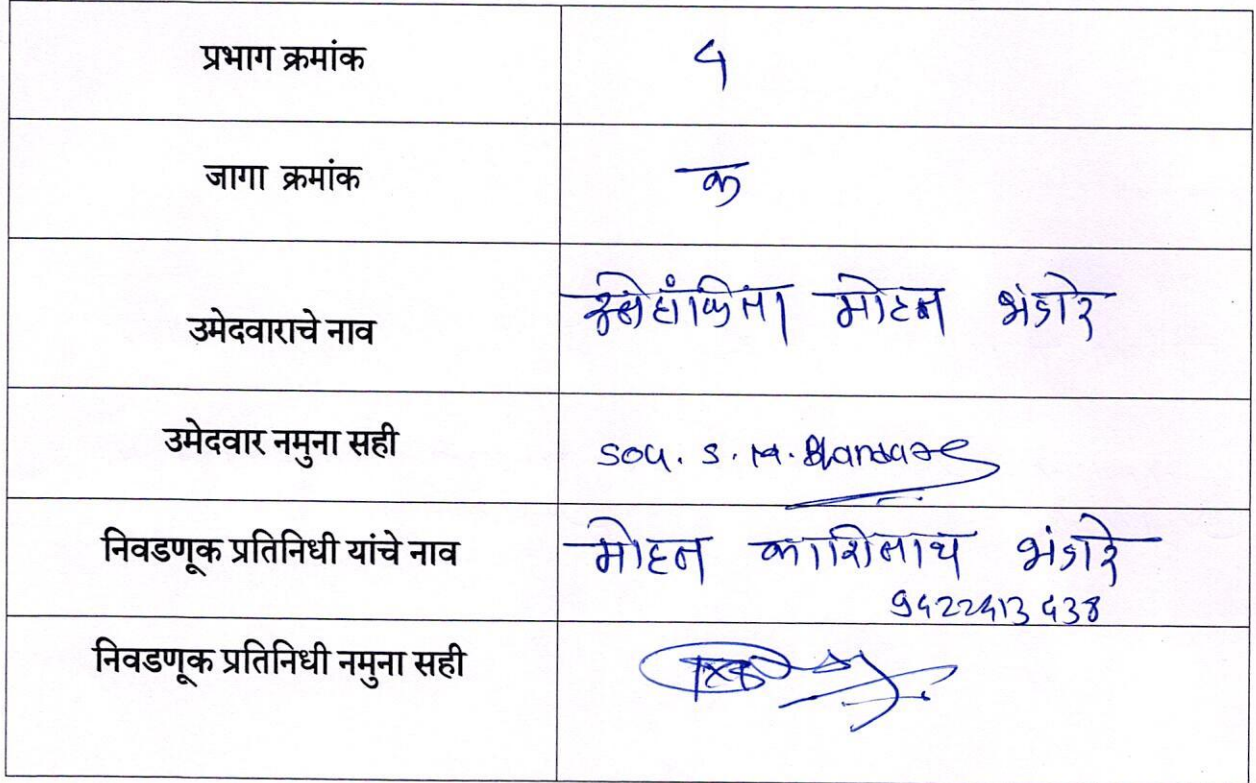 प्रभाग क्रमांक ५
जागा क्रमांक क
उमेदवाराचे नाव स्नेहांकिता मोहन भंडारे
उमेदवार नमुना सही sou. S. M. Bhandare
निवडणूक प्रतिनिधी यांचे नाव मोहन काशिनाथ भंडारे
9422413438
निवडणूक प्रतिनिधी नमुना सही